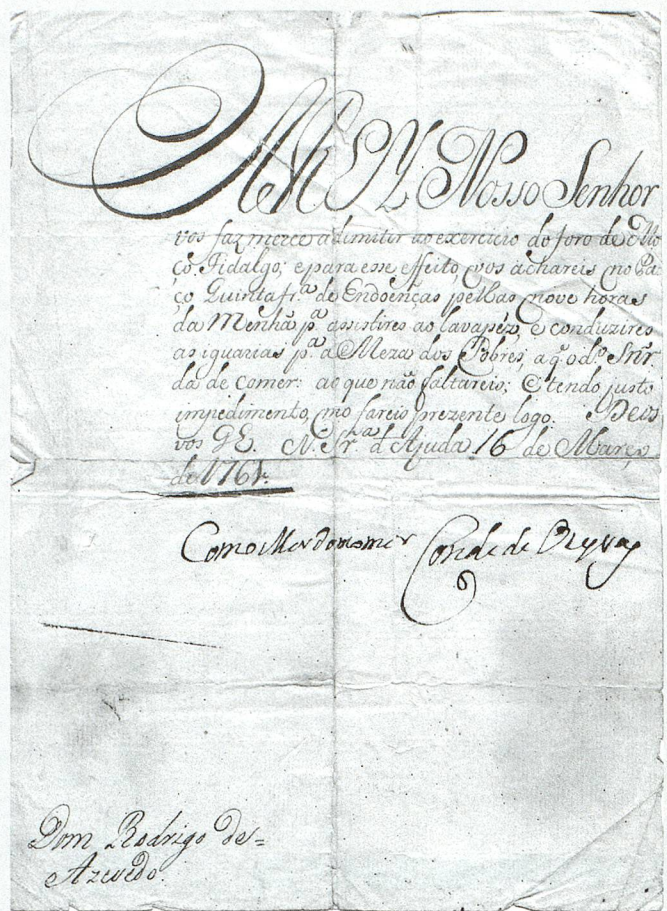 ElREY Nosso Senhor
vos faz merce adimitir ao exercicio do foro de Mo
ço Fidalgo; e para esse effeito, vos achareis no Pa
ço Quinta fr.ª de Endoenças pellas nove horas
da Menhã p.ª assistires ao lavapéz, e conduzires
as iguarias p.ª a Meza dos Pobres, a q̃ o d.º Snr̃
da de comer: ao que não faltareis; E tendo justo
impedimento, mo fareis prezente logo. Deos
vos G.E. N. Sr.ª d'Ajuda 16 de Março
de 1761.
Como Mordomo mor Conde de
Dom Rodrigo de=
Azevedo.